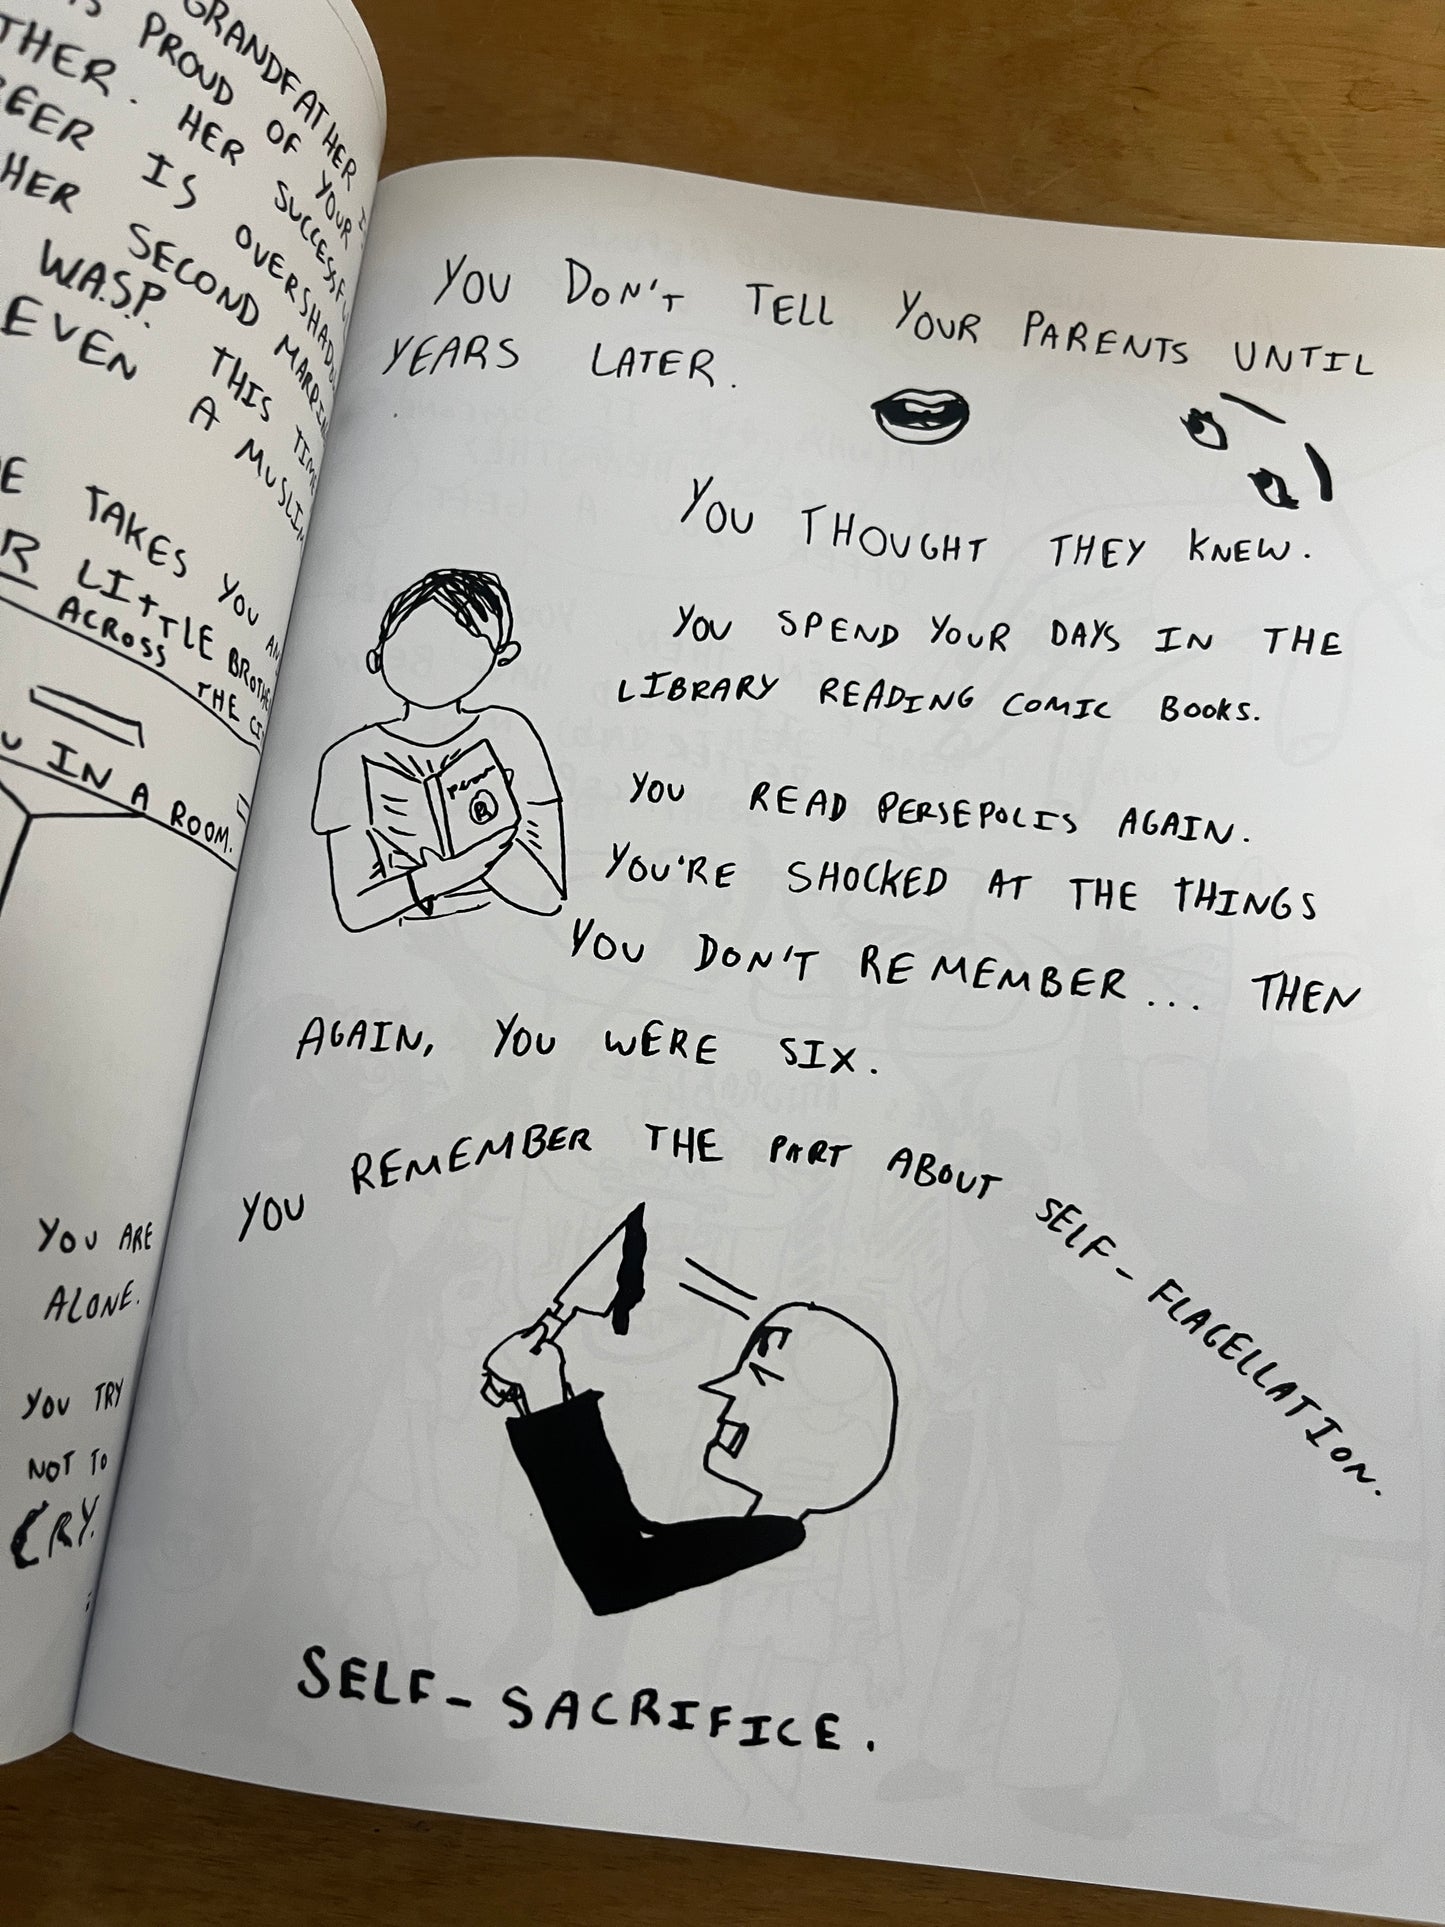 GRANDFATHER
PROUD OF YOUR
THER. HER SUCCESSFU
EER IS OVERSHADO
HER SECOND MARRI
W.A.S.P. THIS TIM
EVEN A MUSLIM
E TAKES YOU AN
R LITTLE BROTHE
ACROSS THE CI
U IN A ROOM.
YOU ARE
ALONE.
YOU TRY
NOT TO
CRY.
YOU DON'T TELL YOUR PARENTS UNTIL
YEARS LATER.
YOU THOUGHT THEY KNEW.
YOU SPEND YOUR DAYS IN THE
LIBRARY READING COMIC BOOKS.
YOU READ PERSEPOLIS AGAIN.
YOU'RE SHOCKED AT THE THINGS
YOU DON'T REMEMBER... THEN
AGAIN, YOU WERE SIX.
YOU REMEMBER THE PART ABOUT SELF-FLAGELLATION.
SELF-SACRIFICE.